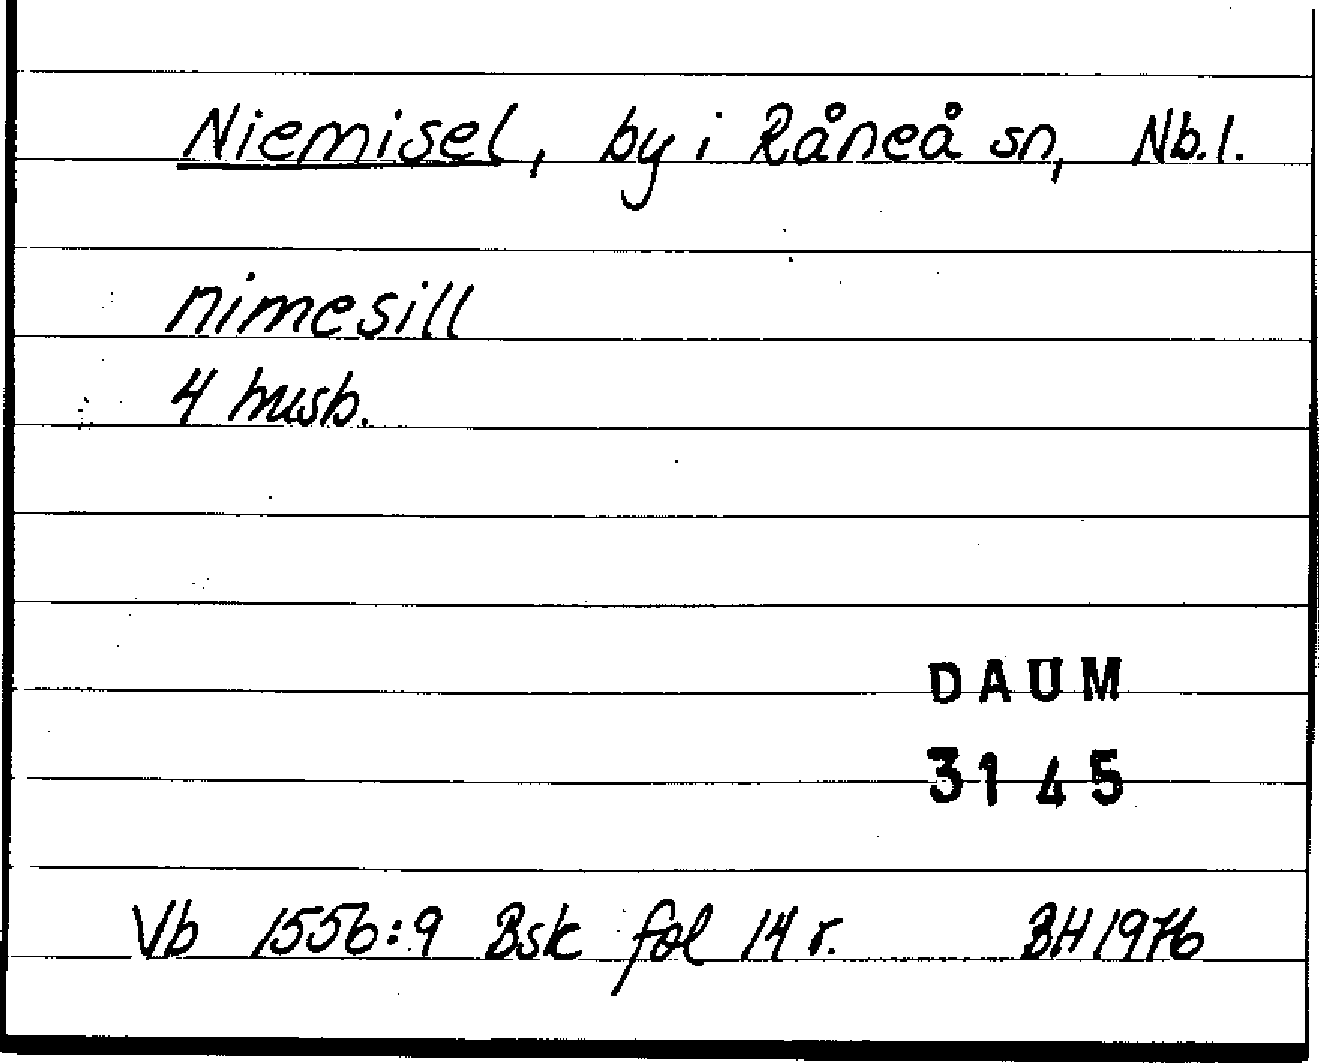 Niemisel, by i Råneå sn, Nb.l.
nimesill
4 husb.
DAUM
3145
Vb 1556:9 Bsk fol 14 r. BH 1976